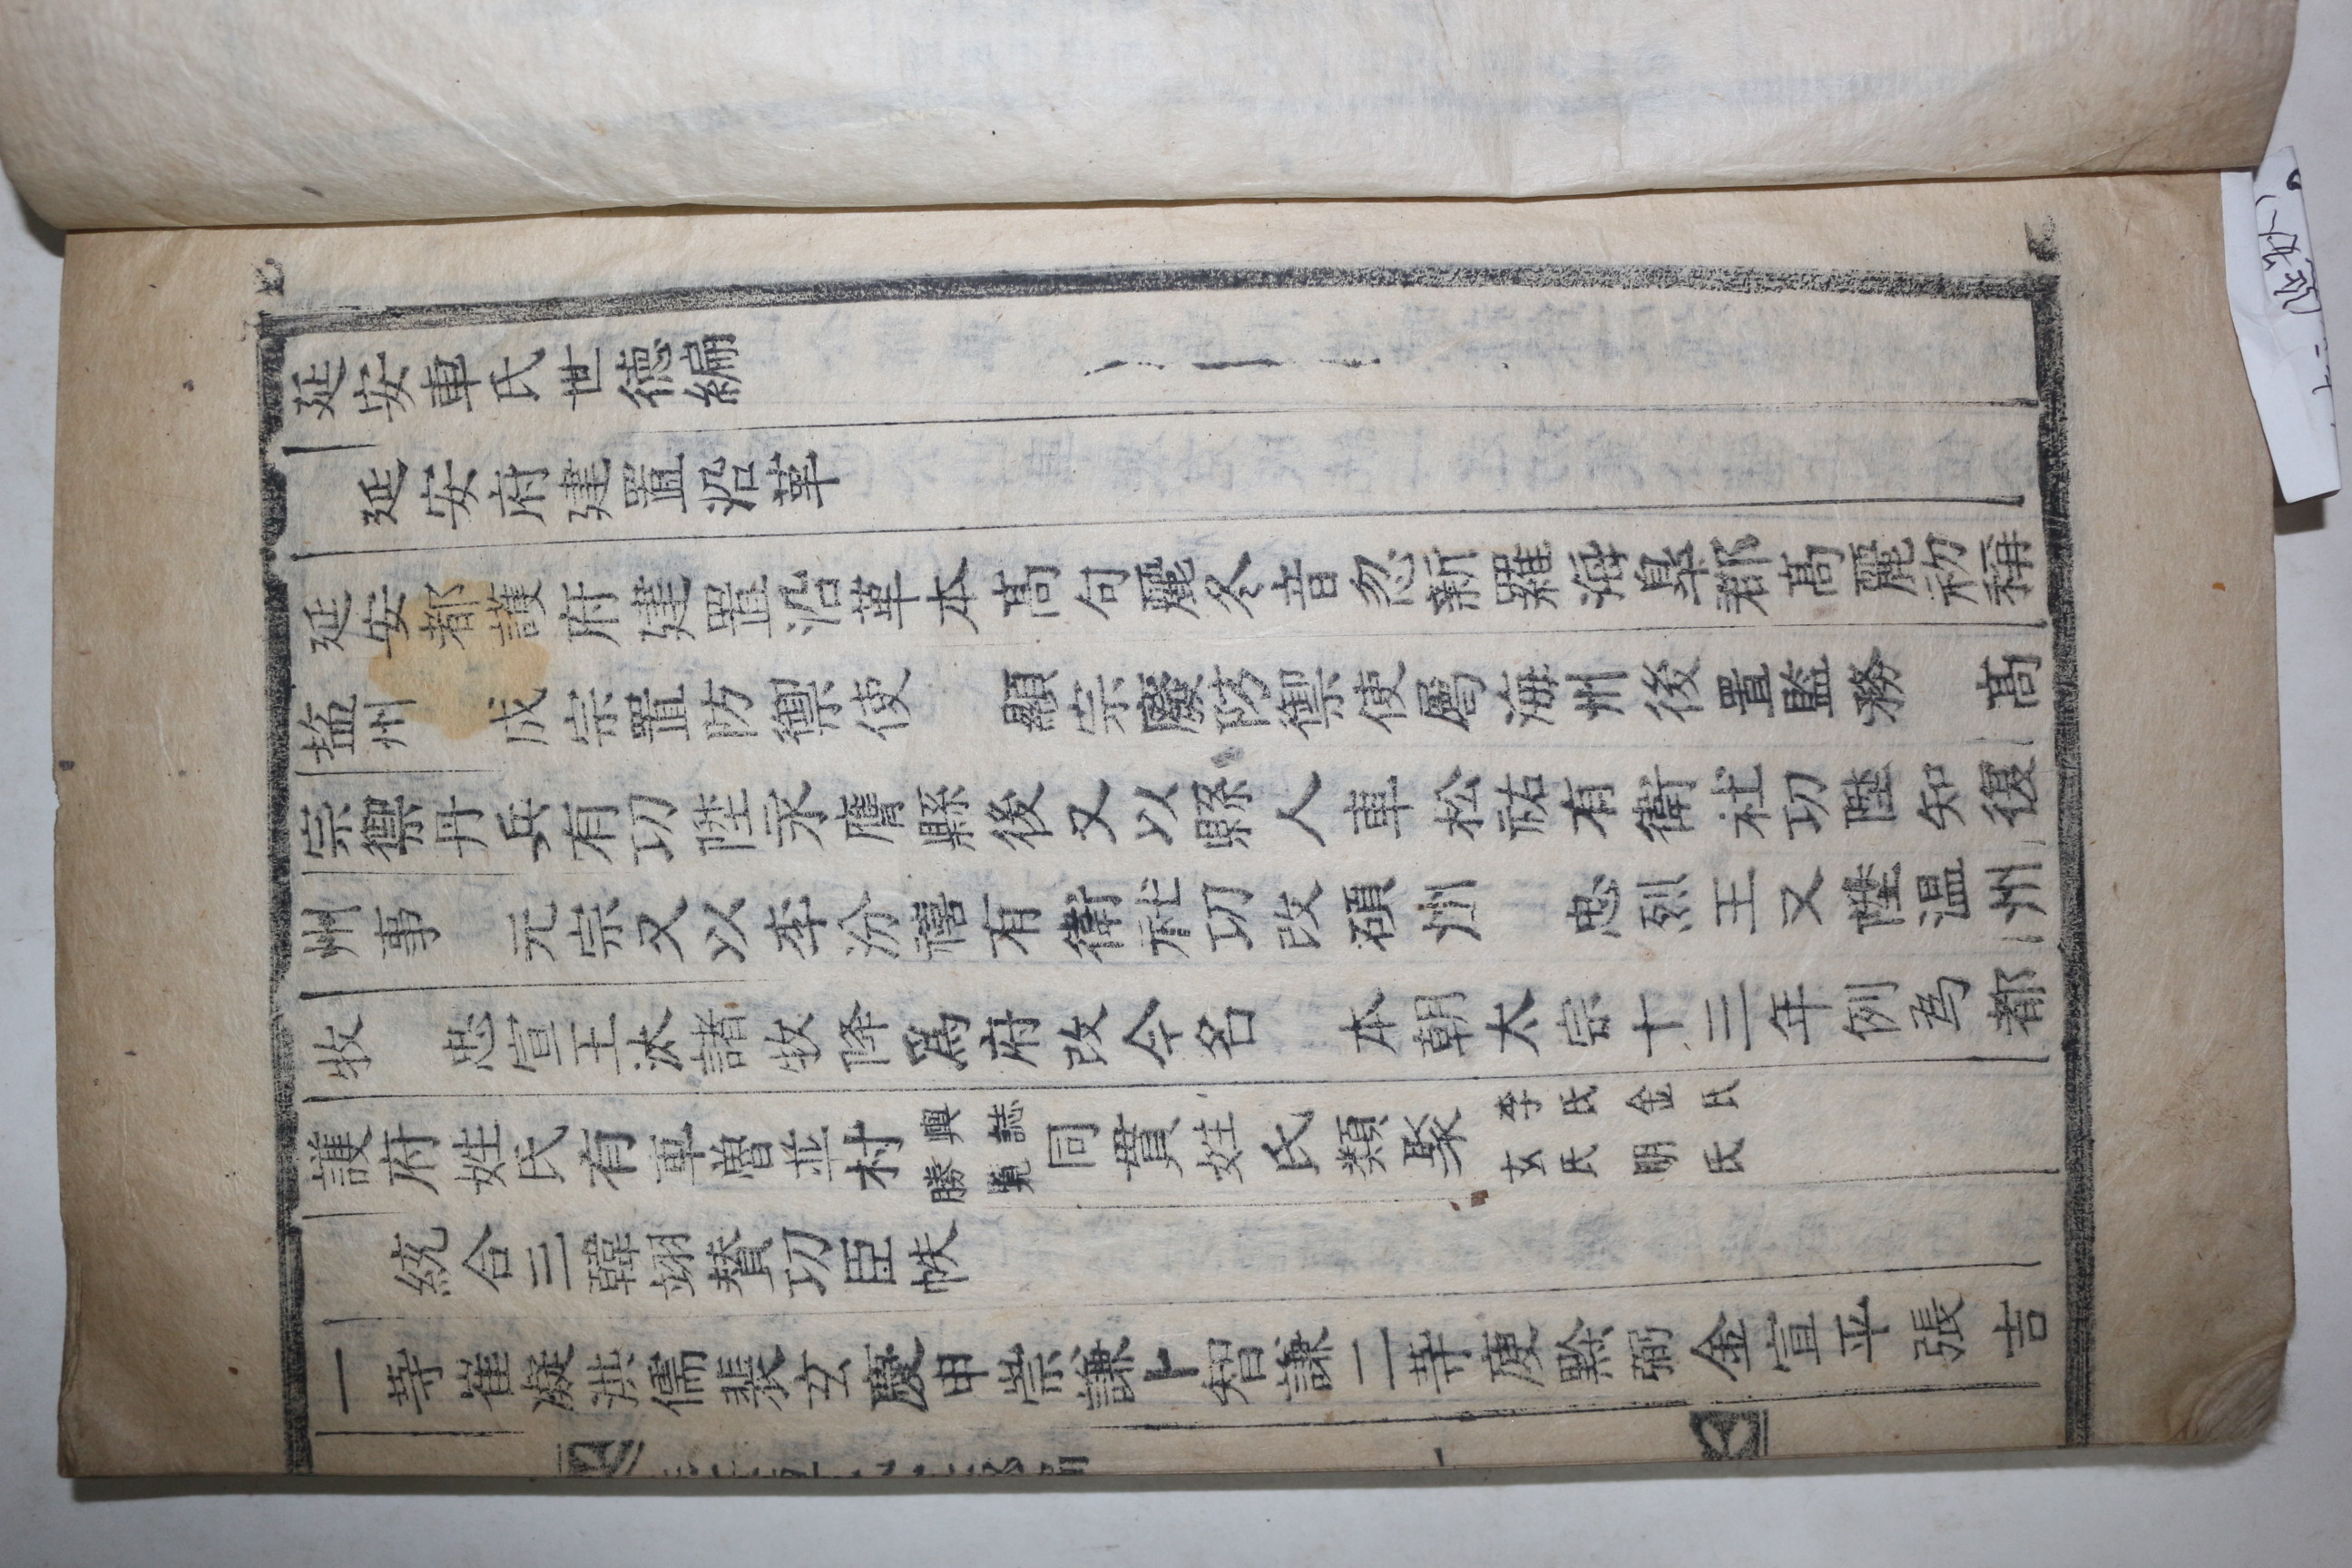 延安車氏世德編
延安府建置沿革
延安都護府建置沿革本高句麗冬音忽新羅海皐郡高麗初稱
盐州 成宗置防禦使 顯宗廢防禦使屬海州後置監務 高
宗禦丹兵有功陞永膺縣後又以縣人車松祐有衛社功陞知復
州事 元宗又以李汾禧有衛社功改碩州 忠烈王又陞溫州
牧 忠宣王汰諸牧降爲府改今名 本朝太宗十三年例为都
護府姓氏有車曽並村輿誌勝覽同貫姓氏類聚李氏金氏玄氏明氏
統合三韓翊賛功臣帙
一等崔凝洪儒裴玄慶申崇謙卜智謙二等庾黔弼金宣平張吉